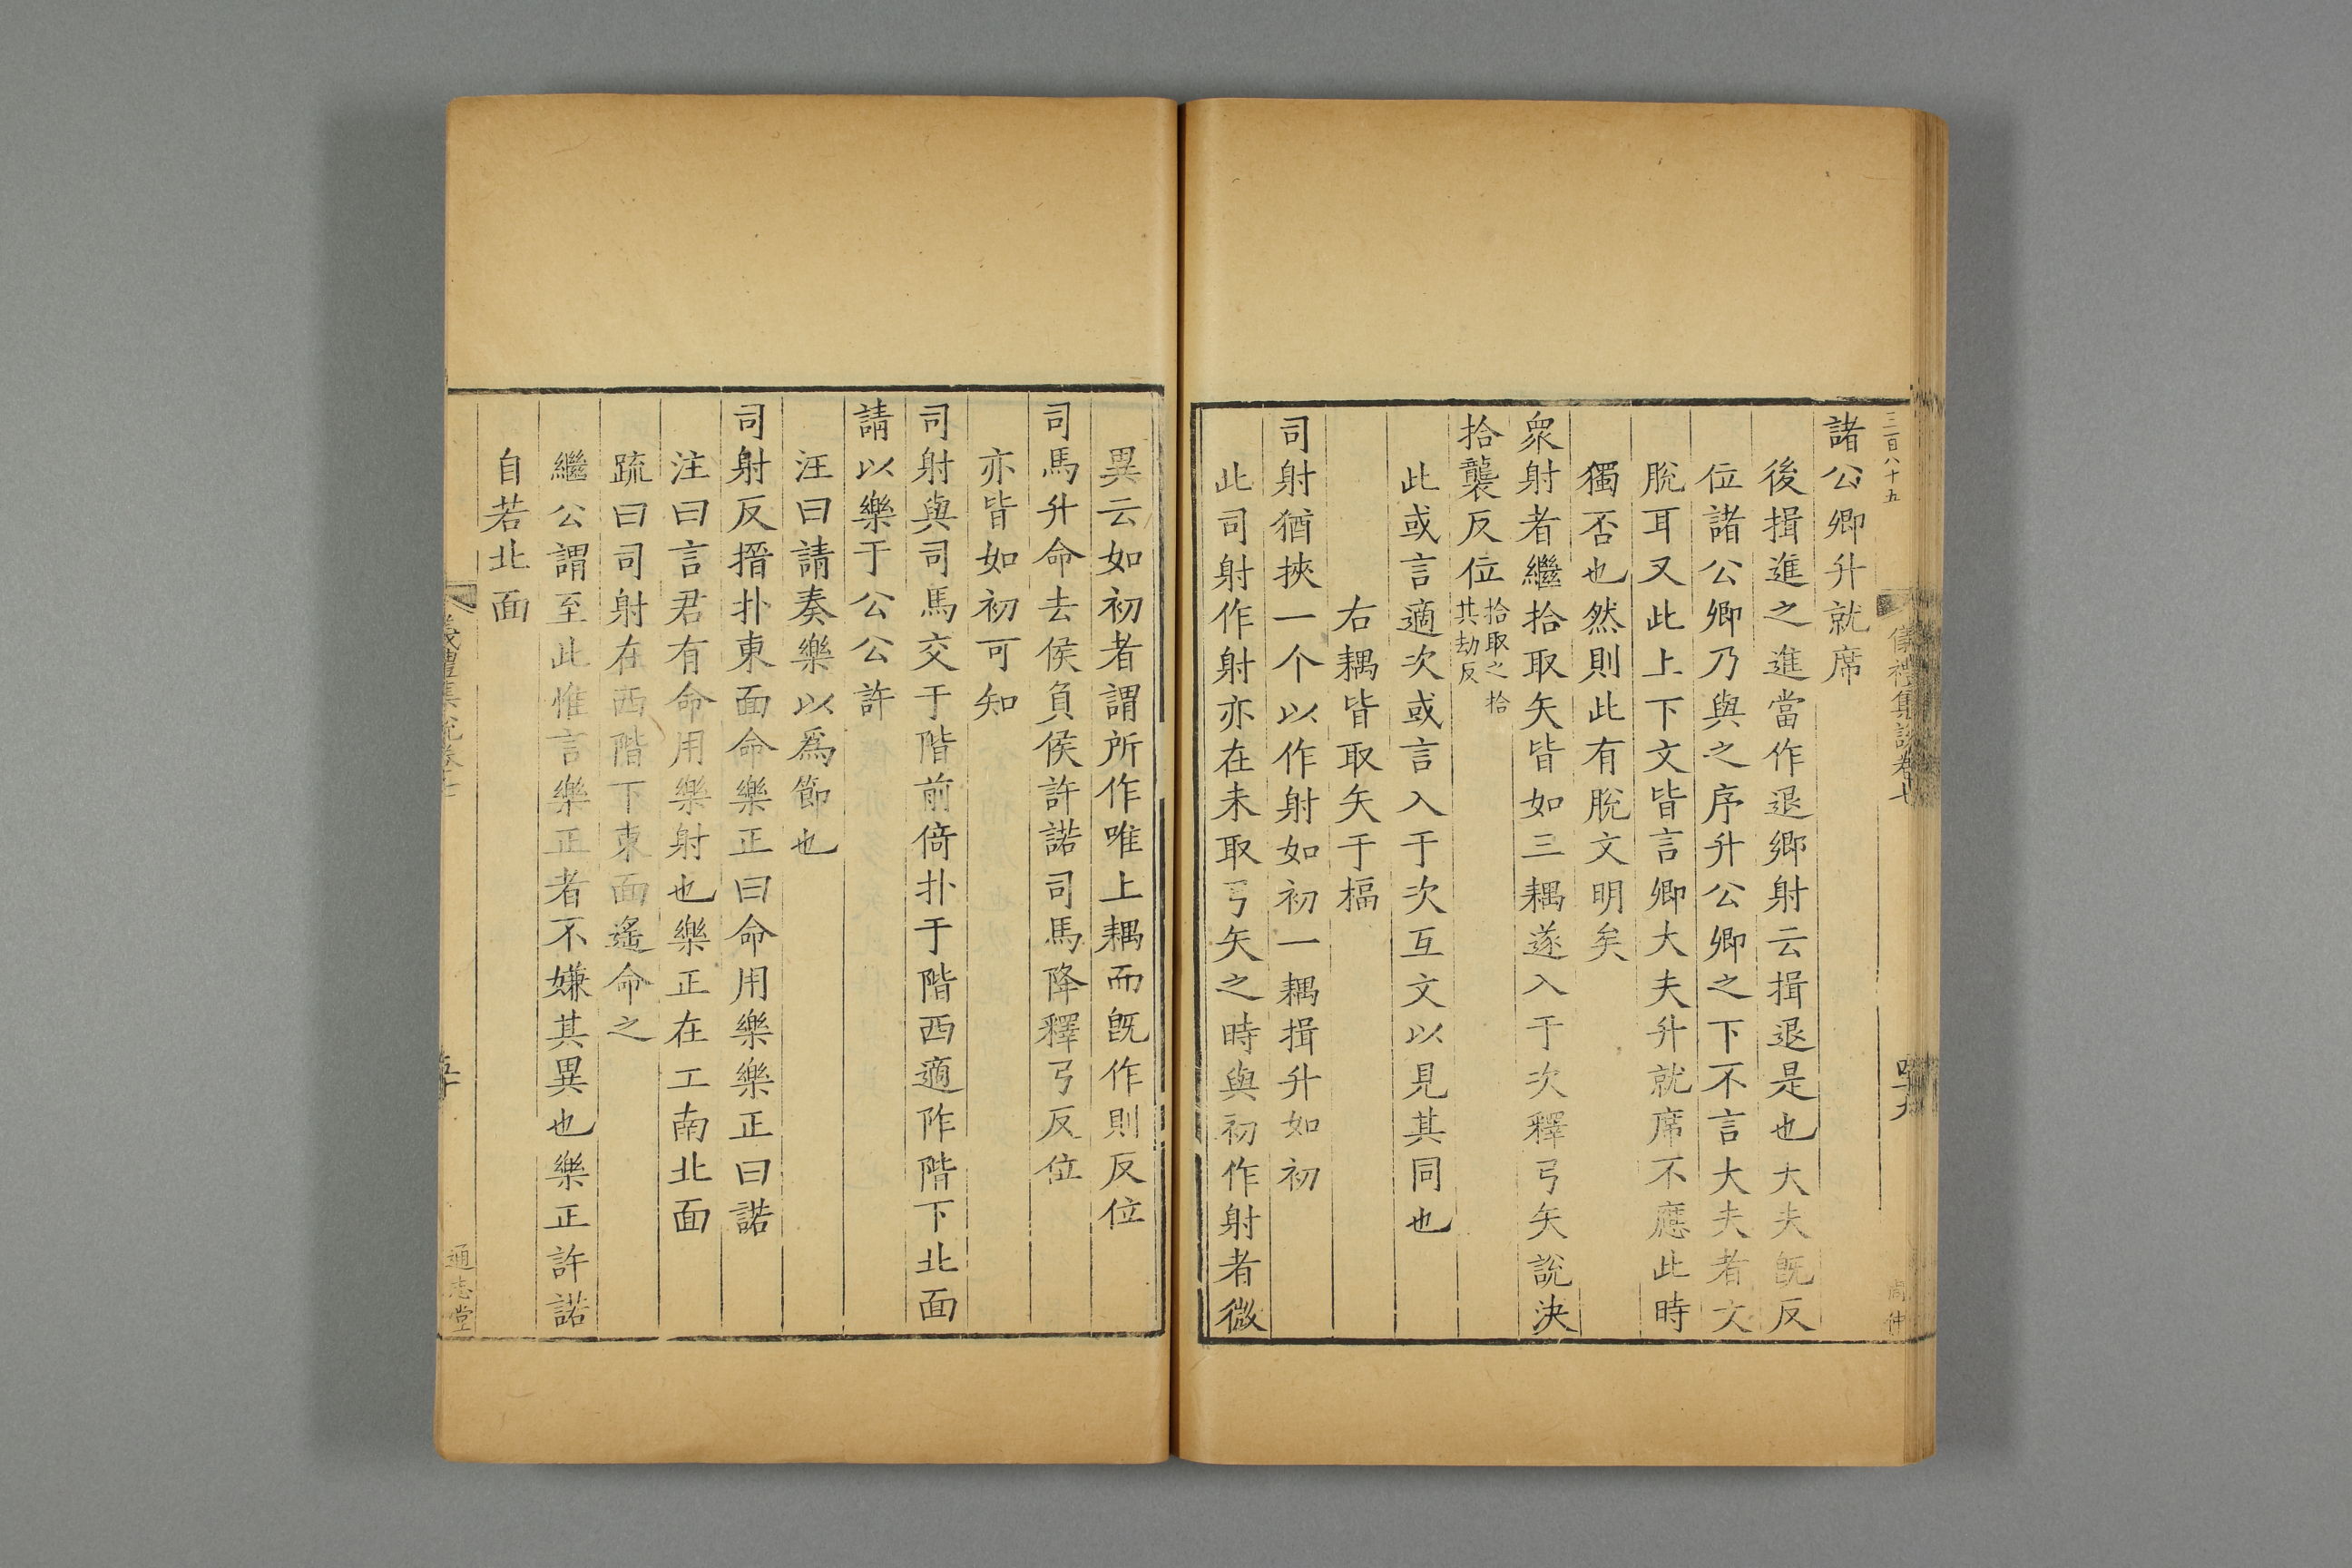 三百八十五
儀禮集說卷七
諸公卿升就席
後揖進之進當作退鄉射云揖退是也大夫既反
位諸公卿乃與之序升公卿之下不言大夫者文
脫耳又此上下文皆言卿大夫升就席不應此時
獨否也然則此有脫文明矣
衆射者繼拾取矢皆如三耦遂入于次釋弓矢說決
拾襲反位拾取之拾其劫反
此或言適次或言入于次互文以見其同也
右耦皆取矢于楅
司射猶挾一个以作射如初一耦揖升如初
此司射作射亦在未取弓矢之時與初作射者微
異云如初者謂所作唯上耦而既作則反位
司馬升命去侯負侯許諾司馬降釋弓反位
亦皆如初可知
司射與司馬交于階前倚扑于階西適阼階下北面
請以樂于公公許
注曰請奏樂以為節也
司射反搢扑東面命樂正曰命用樂樂正曰諾
注曰言君有命用樂射也樂正在工南北面
疏曰司射在西階下東面遙命之
繼公謂至此惟言樂正者不嫌其異也樂正許諾
自若北面
儀禮集說卷七
通志堂